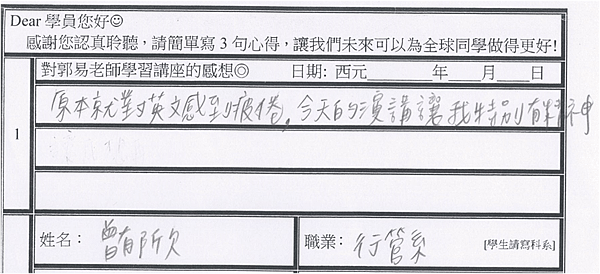 Dear 學員您好☺
感謝您認真聆聽，請簡單寫 3 句心得，讓我們未來可以為全球同學做得更好!
對郭易老師學習講座的感想◎ 日期: 西元______年____月____日
1
原本就對英文感到疲倦，今天的演講讓我特別有精神
姓名： 曾有欣 職業： 行管系 [學生請寫科系]